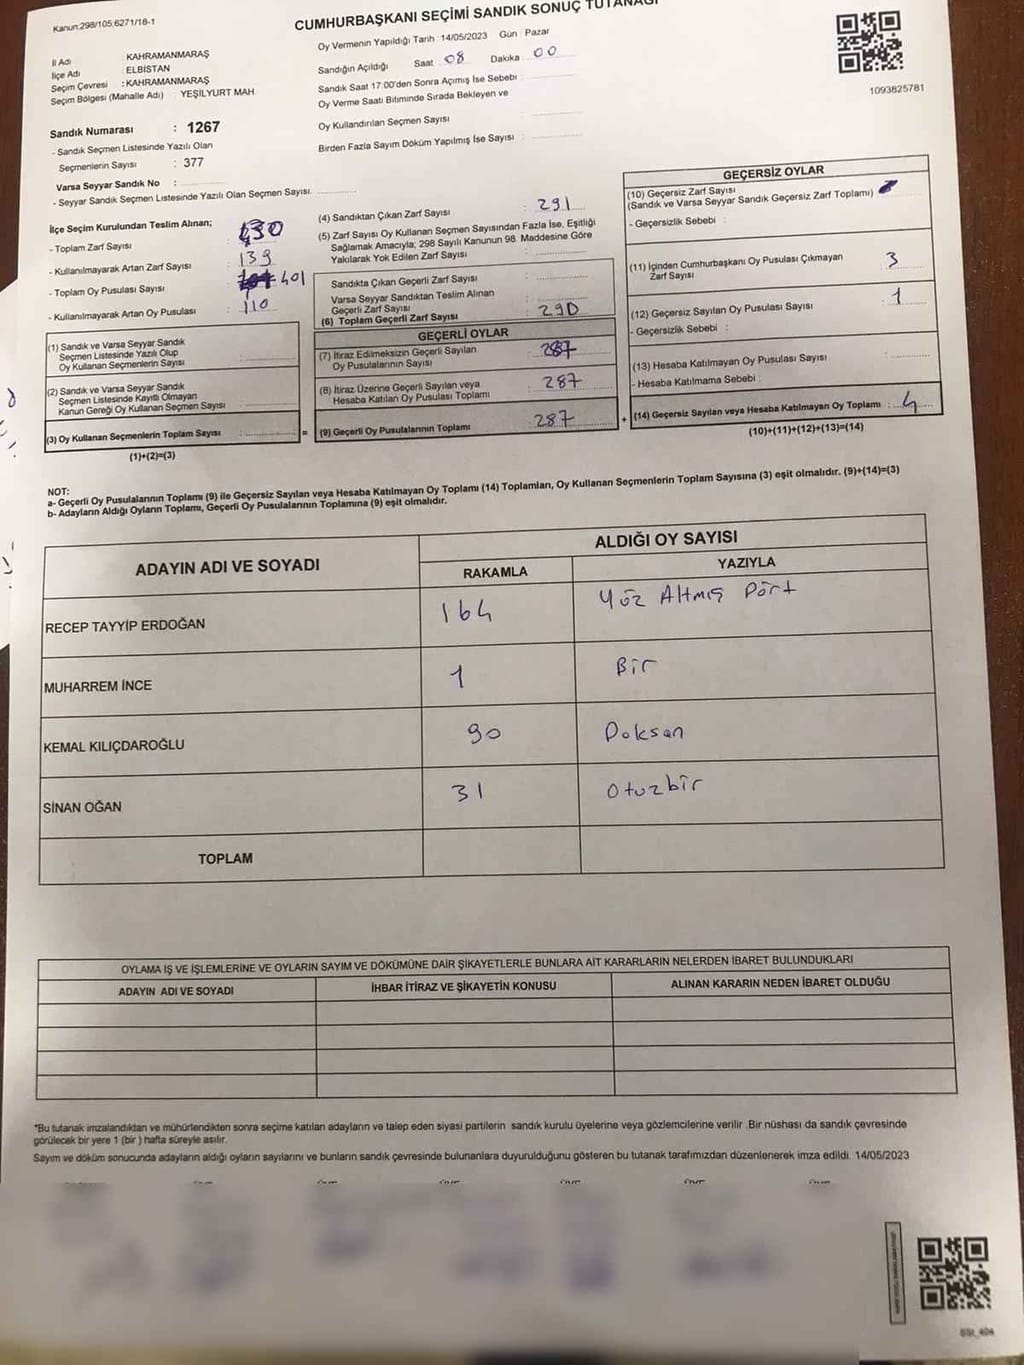 Kanun:298/105;6271/18-1
CUMHURBAŞKANI SEÇİMİ SANDIK SONUÇ TUTANAĞI
İl Adı KAHRAMANMARAŞ
İlçe Adı : ELBİSTAN
Seçim Çevresi : KAHRAMANMARAŞ
Seçim Bölgesi (Mahalle Adı) YEŞİLYURT MAH.
Sandık Numarası : 1267
- Sandık Seçmen Listesinde Yazılı Olan
Seçmenlerin Sayısı : 377
Varsa Seyyar Sandık No :
- Seyyar Sandık Seçmen Listesinde Yazılı Olan Seçmen Sayısı.
Oy Vermenin Yapıldığı Tarih : 14/05/2023 Gün : Pazar
Sandığın Açıldığı Saat 08 Dakika 00
Sandık Saat 17:00'den Sonra Açımış İse Sebebi
Oy Verme Saati Bitiminde Sırada Bekleyen ve
Oy Kullandırılan Seçmen Sayısı :
Birden Fazla Sayım Döküm Yapılmış İse Sayısı :
1093825781
İlçe Seçim Kurulundan Teslim Alınan;
- Toplam Zarf Sayısı : 430
- Kullanılmayarak Artan Zarf Sayısı : 139
- Toplam Oy Pusulası Sayısı : 401
- Kullanılmayarak Artan Oy Pusulası : 110
(1) Sandık ve Varsa Seyyar Sandık
Seçmen Listesinde Yazılı Olup
Oy Kullanan Seçmenlerin Sayısı :
(2) Sandık ve Varsa Seyyar Sandık
Seçmen Listesinde Kayıtlı Olmayan
Kanun Gereği Oy Kullanan Seçmen Sayısı :
(3) Oy Kullanan Seçmenlerin Toplam Sayısı : =
(1)+(2)=(3)
(4) Sandıktan Çıkan Zarf Sayısı : 291
(5) Zarf Sayısı Oy Kullanan Seçmen Sayısından Fazla İse, Eşitliği
Sağlamak Amacıyla; 298 Sayılı Kanunun 98. Maddesine Göre
Yakılarak Yok Edilen Zarf Sayısı :
Sandıkta Çıkan Geçerli Zarf Sayısı :
Varsa Seyyar Sandıktan Teslim Alınan
Geçerli Zarf Sayısı :
(6) Toplam Geçerli Zarf Sayısı : 290
GEÇERLİ OYLAR
(7) İtiraz Edilmeksizin Geçerli Sayılan
Oy Pusulasının Sayısı : 287
(8) İtiraz Üzerine Geçerli Sayılan veya
Hesaba Katılan Oy Pusulası Toplamı : 287
(9) Geçerli Oy Pusulalarının Toplamı : 287 +
GEÇERSİZ OYLAR
(10) Geçersiz Zarf Sayısı
(Sandık ve Varsa Seyyar Sandık Geçersiz Zarf Toplamı)
- Geçersizlik Sebebi :
(11) İçinden Cumhurbaşkanı Oy Pusulası Çıkmayan
Zarf Sayısı 3
(12) Geçersiz Sayılan Oy Pusulası Sayısı : 1
- Geçersizlik Sebebi :
(13) Hesaba Katılmayan Oy Pusulası Sayısı :
- Hesaba Katılmama Sebebi :
(14) Geçersiz Sayılan veya Hesaba Katılmayan Oy Toplamı : 4
(10)+(11)+(12)+(13)=(14)
NOT:
a- Geçerli Oy Pusulalarının Toplamı (9) ile Geçersiz Sayılan veya Hesaba Katılmayan Oy Toplamı (14) Toplamları, Oy Kullanan Seçmenlerin Toplam Sayısına (3) eşit olmalıdır. (9)+(14)=(3)
b- Adayların Aldığı Oyların Toplamı, Geçerli Oy Pusulalarının Toplamına (9) eşit olmalıdır.
ADAYIN ADI VE SOYADI ALDIĞI OY SAYISI
RAKAMLA YAZIYLA
RECEP TAYYİP ERDOĞAN 164 Yüz Altmış Dört
MUHARREM İNCE 1 Bir
KEMAL KILIÇDAROĞLU 90 Doksan
SİNAN OĞAN 31 Otuzbir
TOPLAM
OYLAMA İŞ VE İŞLEMLERİNE VE OYLARIN SAYIM VE DÖKÜMÜNE DAİR ŞİKAYETLERLE BUNLARA AİT KARARLARIN NELERDEN İBARET BULUNDUKLARI
ADAYIN ADI VE SOYADI İHBAR İTİRAZ VE ŞİKAYETİN KONUSU ALINAN KARARIN NEDEN İBARET OLDUĞU
*Bu tutanak imzalandıktan ve mühürlendikten sonra seçime katılan adayların ve talep eden siyasi partilerin sandık kurulu üyelerine veya gözlemcilerine verilir .Bir nüshası da sandık çevresinde
görülecek bir yere 1 (bir ) hafta süreyle asılır.
Sayım ve döküm sonucunda adayların aldığı oyların sayılarını ve bunların sandık çevresinde bulunanlara duyurulduğunu gösteren bu tutanak tarafımızdan düzenlenerek imza edildi. 14/05/2023